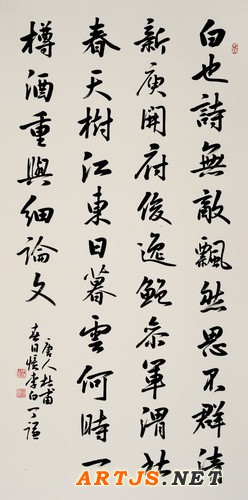 白也詩無敵飄然思不群清
新庾開府俊逸鮑參軍渭北
春天樹江東日暮雲何時一
樽酒重與細論文
唐人杜甫
春日憶李白丁谦
ARTJS.NET